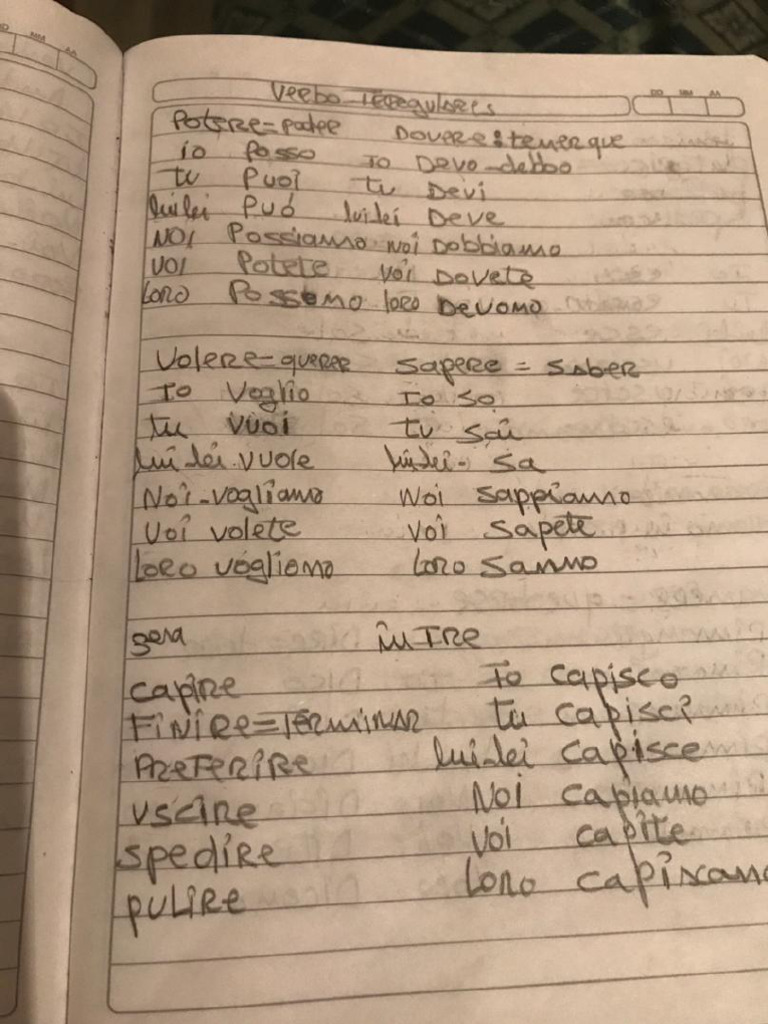 DD MM AA
Verbo Irregulares
Potere=poder Dovere=tener que
io Posso Io Devo-debbo
tu Puoi tu Devi
lui lei Puó lui lei Deve
NOI Possiamo noi Dobbiamo
VOI Potete voi Dovete
loro Possomo loro Devomo
Volere=querer sapere = saber
Io Voglio Io so
tu vuoi tu sai
lui lei vuole lui lei- sa
Noi-vogliamo Noi sappiamo
Voi volete voi sapete
loro vogliomo loro sanno
inTRE
capire Io capisco
Finire=terminar tu capisci
Preferire lui-lei capisce
uscire Noi capiamo
spedire voi capite
pulire loro capiscamo